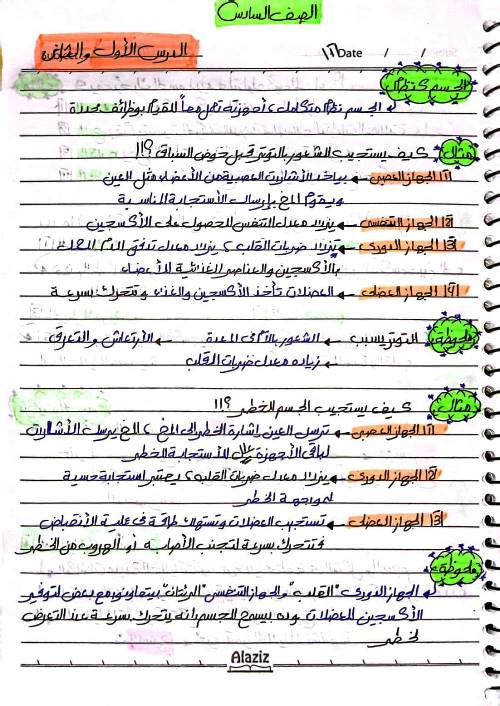 الصف السادس
الدرس الأول والثاني
Date / /
الجسم كنظام
الجسم نظام متكامل، أجهزته تعمل معاً للقيام بوظائف محددة
مثال كيف يستجيب الشعور بالتوتر قبل خوض السباق؟!!
|1| الجهاز العصبى ← بياخد الأشارات العصبية من الأعضاء مثل العين
ويقوم المخ بإرسال الأستجابة المناسبة
|2| الجهاز التنفسى ← يزداد معدل التنفس للحصول على الأكسجين
|3| الجهاز الدورى ← تزداد ضربات القلب، يزداد معدل تدفق الدم المحمل
بالأكسجين والعناصر الغذائية للأعضاء
|4| الجهاز العضلى ← العضلات تأخذ الأكسجين والغذاء وتتحرك بسرعة
ملحوظة التوتر يسبب ← الشعور بالآم فى المعدة ← الأرتعاش والتعرق
← زياده معدل ضربات القلب
مثال كيف يستجيب الجسم للخطر؟!!
|1| الجهاز العصبى ← ترسل العين إشارة الخطر إلى المخ، المخ يرسل الأشارات
لباقى الأجهزة للأستجابة للخطر
|2| الجهاز الدورى ← يزداد معدل ضربات القلب، يعتبر استجابة حسية
لمواجهة الخطر
|3| الجهاز العضلى ← تستجيب العضلات وتستهلك طاقة فى عملية الأنقباض
فتتحرك بسرعة لتجنب الأصابة أو الهروب من الخطر
ملحوظة
الجهاز الدورى "القلب" والجهاز التنفسى "الرئتان" بيتعاونو مع بعض لتوفير
الأكسجين للعضلات وده بيسمح للجسم انه يتحرك بسرعة عند التعرض
لخطر
Alaziz